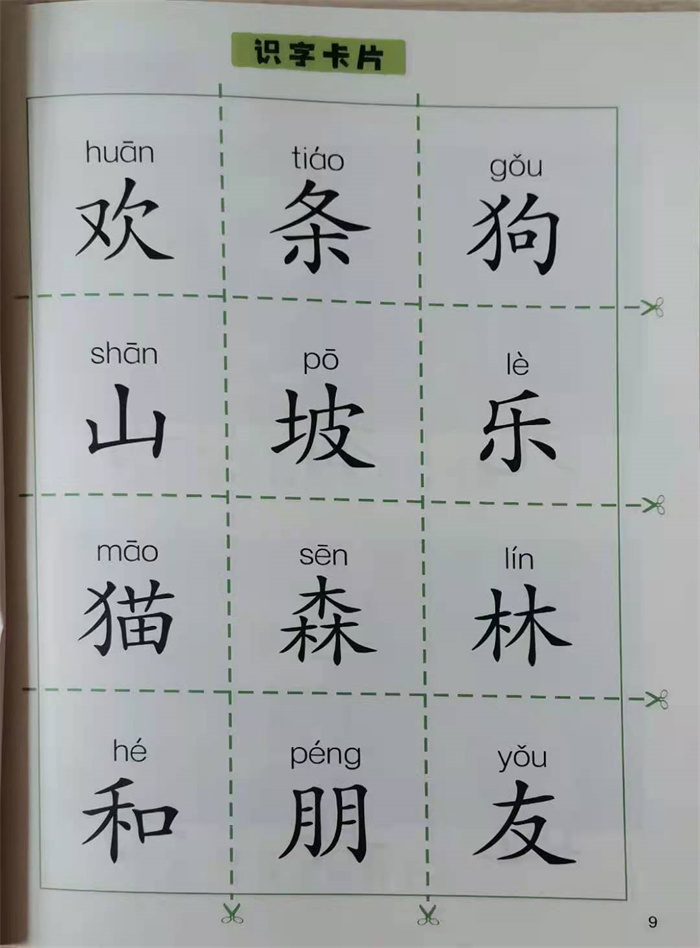 识字卡片
huān tiáo gǒu
欢 条 狗
shān pō lè
山 坡 乐
māo sēn lín
猫 森 林
hé péng yǒu
和 朋 友
9